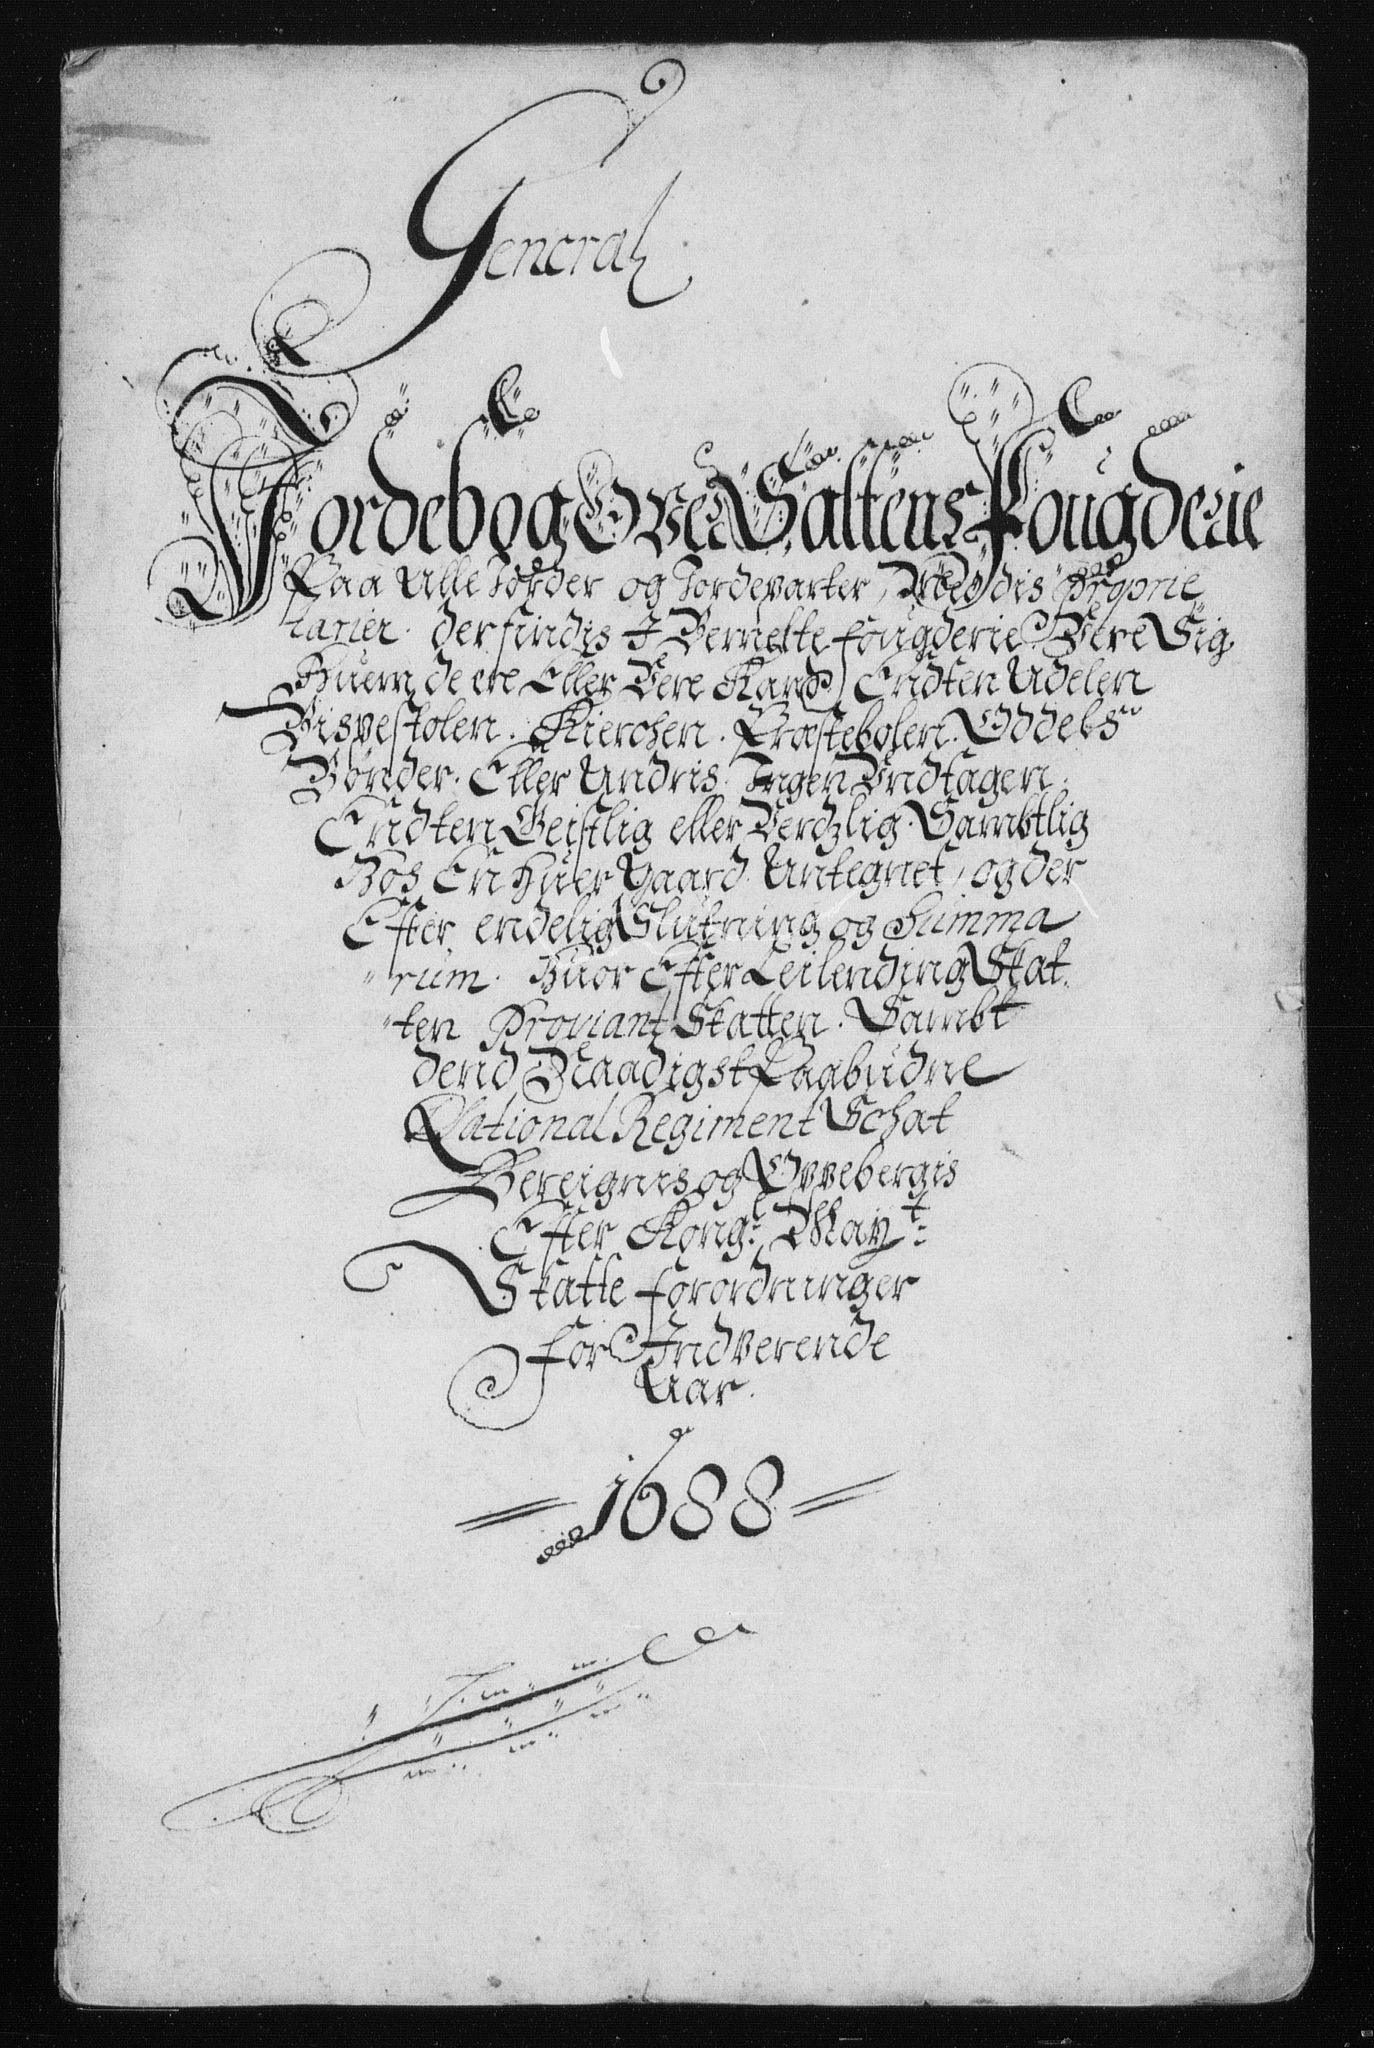 General
Jordebog Over Saltens Fougderie
Paa Alle Jorder og Jordeparter, Med dis Proprie
tarier. der findis I Bemelte fougderie Være Sig
Huem de ere Eller Være Kand, Endten Adelen
Bispestolen. Kierchen. Præstebolen. Oddels
Bønder. Eller Andris. Ingen Undtagen.
Endten Geistlig eller Verdzlig. Sambtlig
Hos En Huer Gaard Antegnet, og der
Efter endelig Slutning og Summa
rum. Huor Efter Leilending Skat
ten Proviant Skatten. Sambt
dend Naadigst Paabudne
National Regiment Schat
Bereignis og Oppebergis
Efter Kongl: Mayt:
Skatte forordninger
for Indverende
Aar.
1688